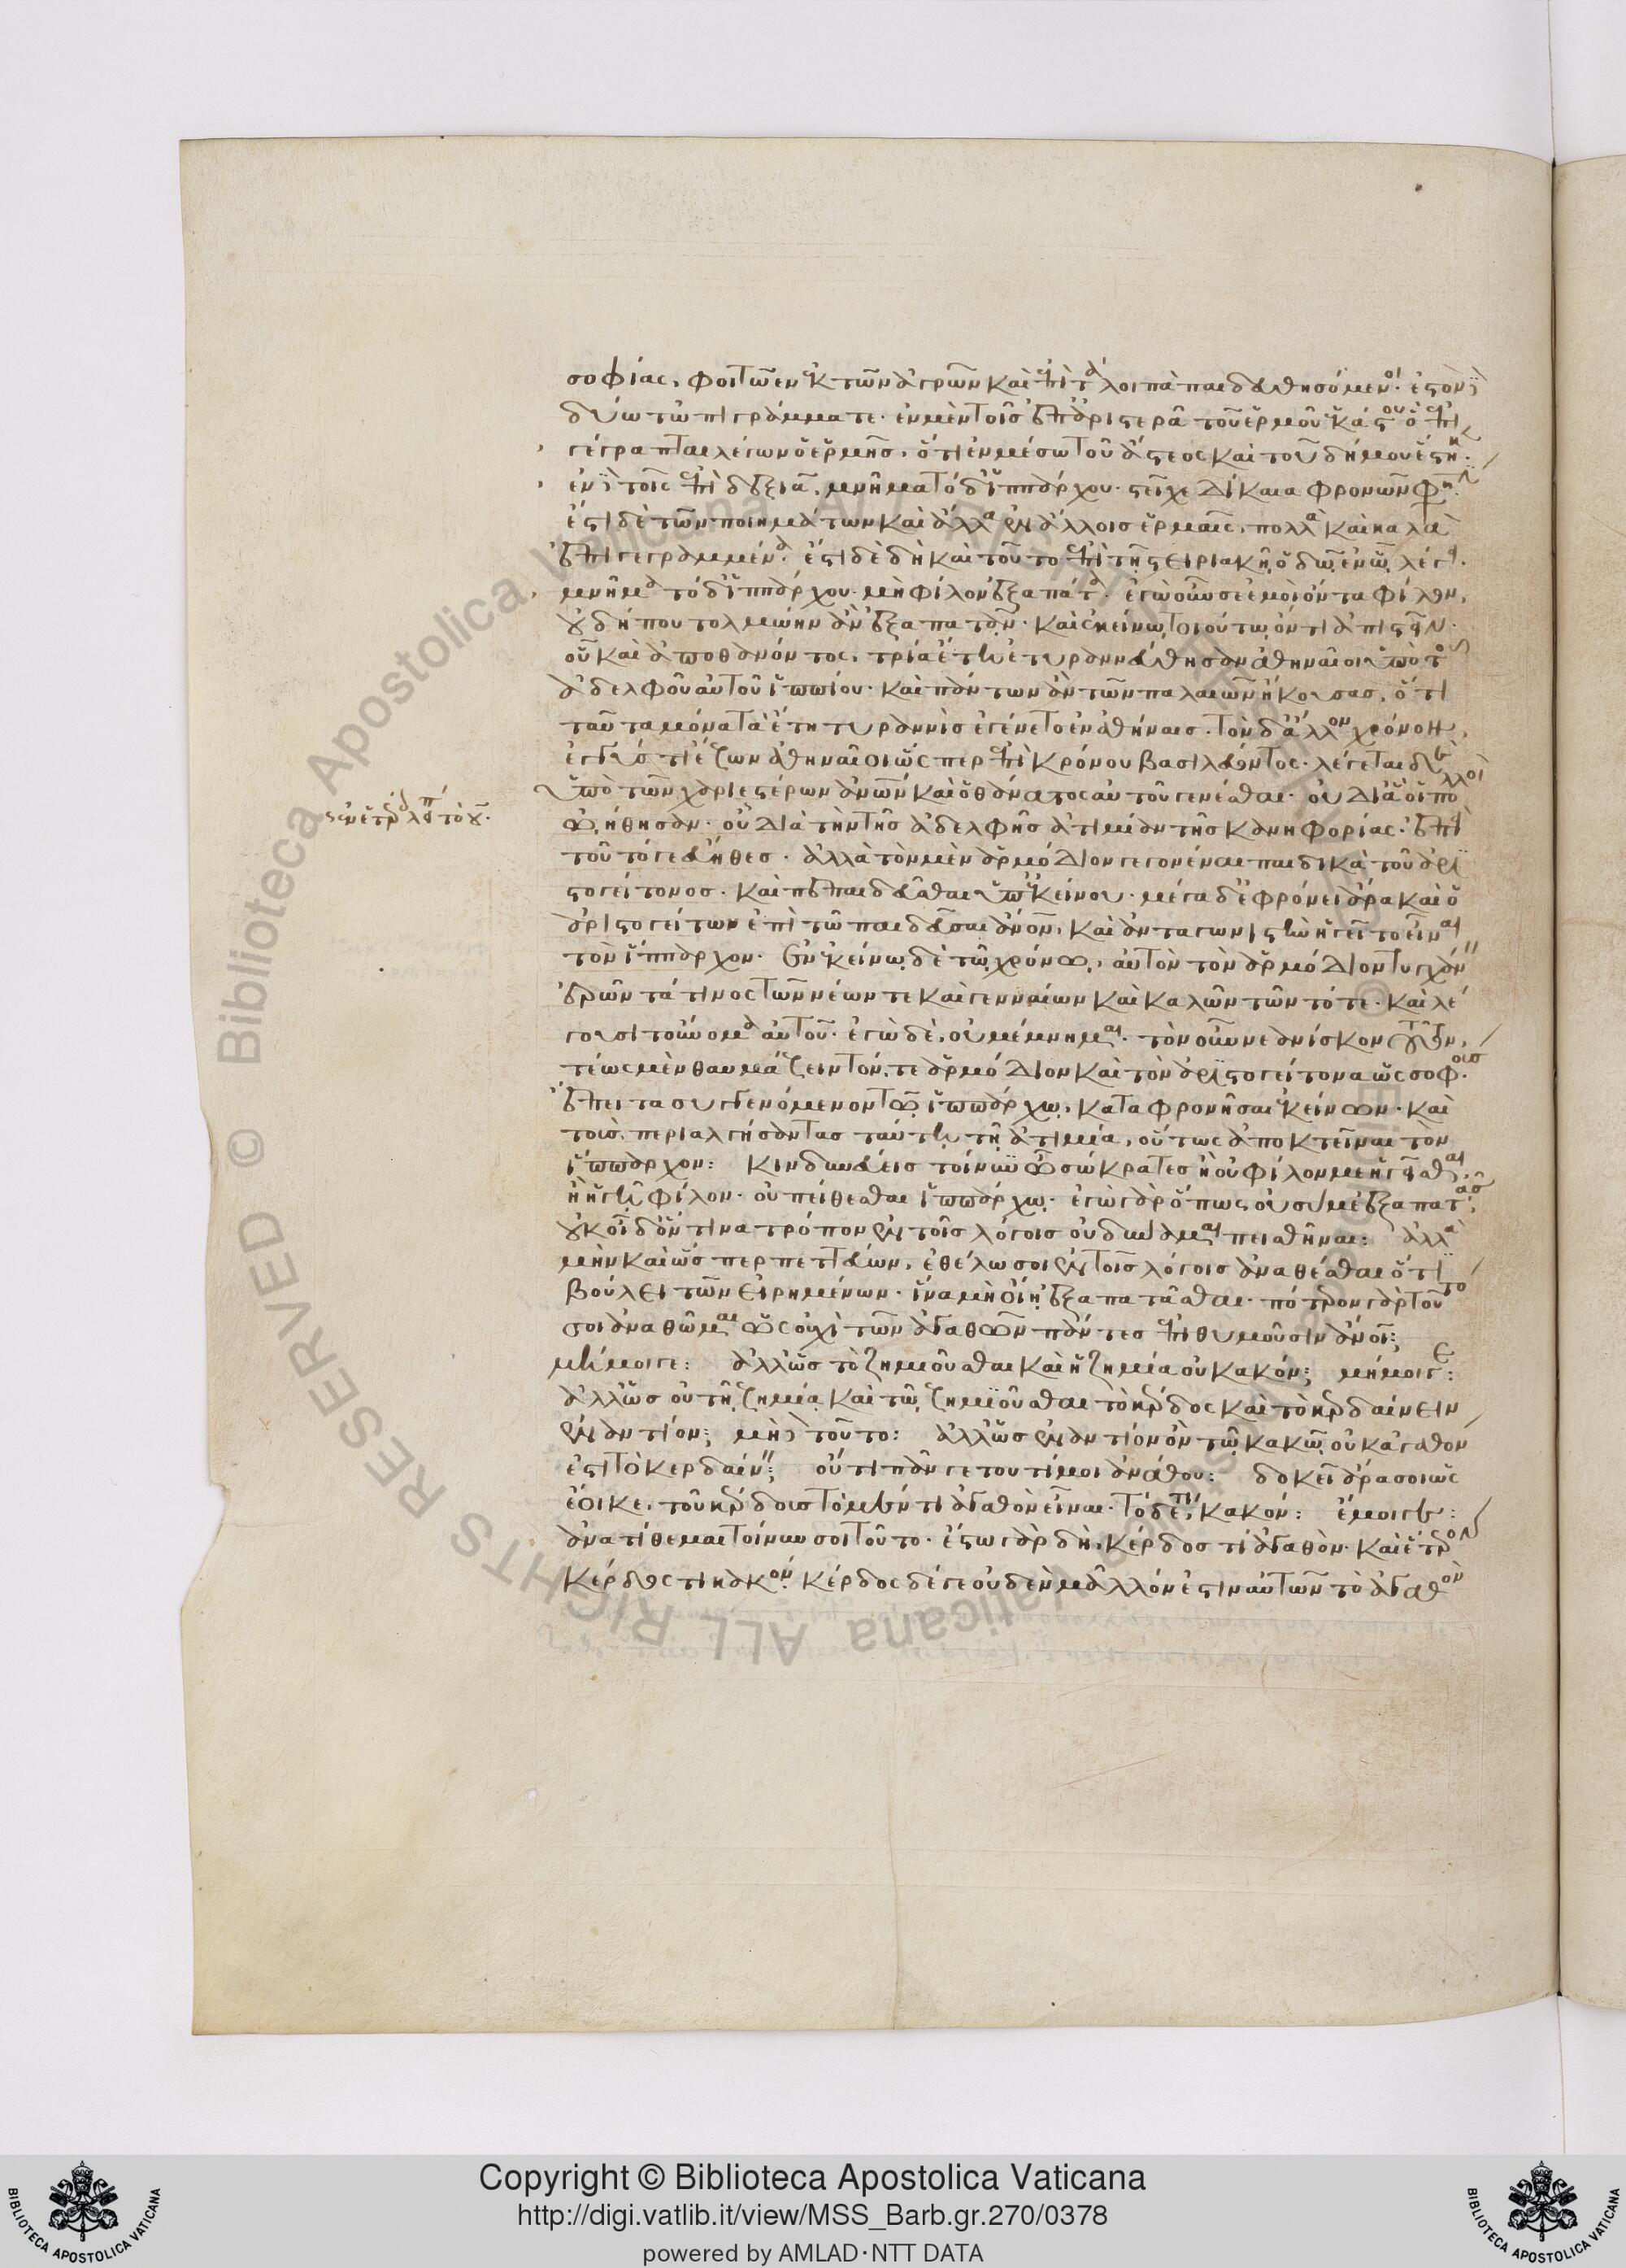 σοφίας, φοιτῶεν ἐκ τῶν ἀγρῶν καὶ ἐπὶ τὰ λοιπὰ παιδευθησόμενοι. ἐστὸν δὲ
δύω τὼ πιγράμματε. ἐν μὲν τοῖς ἐπ' ἀριστερᾶ τοῦ ἑρμοῦ ἑκάστου ἐπι
γέγραπται λέγων ὁ ἑρμῆς, ὅτι ἐν μέσω τοῦ ἄστεος καὶ τοῦ δήμου ἕστηκεν.
ἐν δὲ τοῖς ἐπὶ δεξιᾶ, μνῆμα τόδ' ἱππάρχου. στεῖχε δίκαια φρονῶν φησὶν.
ἔστι δὲ τῶν ποιημάτων καὶ ἄλλα ἐν ἄλλοις ἑρμαῖς, πολλὰ καὶ καλὰ
ἐπιγεγραμμένα. ἔστι δὲ δὴ καὶ τοῦτο ἐπὶ τῇ στειριακῇ ὁδῷ, ἐν ᾧ λέγει.
μνῆμα τόδ' ἱππάρχου. μὴ φίλον ἐξαπάτα. ἐγὼ οὖν σὲ ἐμοὶ ὄντα φίλον,
οὐ δήπου τολμώην ἂν ἐξαπατᾶν. καὶ ἐκείνῳ τοιούτῳ ὄντι ἀπιστεῖν.
οὗ καὶ ἀποθανόντος, τρία ἔτη ἐτυραννεύθησαν ἀθηναῖοι ὑπὸ τοῦ
ἀδελφοῦ αὐτοῦ ἱππίου. καὶ πάντων ἂν τῶν παλαιῶν ἤκουσας, ὅτι
ταῦτα μόνα τὰ ἔτη τυραννὶς ἐγένετο ἐν ἀθήναις. τὸν δ' ἄλλον χρόνον,
ἐγγύς τι ἔζων ἀθηναῖοι ὥσπερ ἐπὶ κρόνου βασιλεύοντος. λέγεται δὲ
ὑπὸ τῶν χαριεστέρων ἀνων καὶ ὁ θάνατος αὐτοῦ γενέσθαι. οὐ δι' ἃ οἱ πολλοὶ
ᾠήθησαν. οὐ διὰ τὴν τῆς ἀδελφῆς ἀτιμίαν τῆς κανηφορίας. ἐπεὶ
τοῦτό γε εὔηθες. ἀλλὰ τὸν μὲν ἁρμόδιον γεγονέναι παιδικὰ τοῦ ἀρι
στογείτονος. καὶ πεπαιδεῦσθαι ὑπ' ἐκείνου. μέγα δ' ἐφρόνει ἄρα καὶ ὁ
ἀριστογείτων ἐπὶ τῶ παιδεῦσαι ἄνον, καὶ ἀνταγωνιστὴν ἡγεῖτο εἶναι
τὸν ἵππαρχον. ἐν ἐκείνῳ δὲ τῷ χρόνῳ, αὐτὸν τὸν ἁρμόδιον τυγχάνειν
ἐρῶντά τινος τῶν νέων τε καὶ γενναίων καὶ καλῶν τῶν τότε. καὶ λέ
γουσι τοὔνομα αὐτοῦ. ἐγὼ δὲ, οὐ μέμνημαι. τὸν οὖν νεανίσκον τοῦτον,
τέως μὲν θαυμάζειν τόν, τε ἁρμόδιον καὶ τὸν ἀριστογείτονα ὡς σοφούς.
ἔπειτα συγγενόμενον τῷ ἱππάρχῳ, καταφρονῆσαι ἐκείνων. καὶ
τοὺς περιαλγήσαντας ταύτη τῇ ἀτιμία, οὕτως ἀποκτεῖναι τὸν
ἵππαρχον: κινδυνεύεις τοίνυν ὦ σώκρατες ἢ οὐ φίλον με ἡγεῖσθαι,
ἢ εἰ ἡγῇ φίλον. οὐ πείθεσθαι ἱππάρχῳ. ἐγὼ γὰρ ὅπως οὐ σύ με ἐξαπατᾷς,
οὐκ οἶδ' ὅν τινα τρόπον ἐν τοῖς λόγοις οὐ δύναμαι πεισθῆναι: ἀλλὰ
μὴν καὶ ὥσπερ πεττεύων, ἐθέλω σοι ἐν τοῖς λόγοις ἀναθέσθαι ὅτι
βούλει τῶν εἰρημένων. ἵνα μὴ οἴῃ ἐξαπατᾶσθαι. πότερον γὰρ τοῦτό
σοι ἀναθῶμαι ὡς οὐχὶ τῶν ἀγαθῶν πάντες ἐπιθυμοῦσιν ἄνοι;
μὴ μοιγε: ἀλλ' ὡς τὸ ζημιοῦσθαι καὶ ἡ ζημία οὐ κακόν; μή μοιγε:
ἀλλ' ὡς οὐ τῇ ζημίᾳ καὶ τῷ ζημιοῦσθαι τὸ κέρδος καὶ τὸ κερδαίνειν
ἐναντίον; μὴ δὲ τοῦτο: ἀλλ' ὡς ἐναντίον ὂν τῷ κακῷ οὐκ ἀγαθόν
ἐστι τὸ κερδαίνειν; οὔ τι πᾶν γε τουτί μοι ἀνάθου: δοκεῖ ἄρα σοι ὡς
ἔοικε, τοῦ κέρδους τὸ μέν τι ἀγαθὸν εἶναι. τὸ δέ τι, κακόν: ἔμοιγε:
ἀνατίθεμαι τοίνυν σοι τοῦτο. ἔστω γὰρ δὴ, κέρδος τι ἀγαθὸν. καὶ ἕτερον
κέρδος τι κακόν. κέρδος δέ γε οὐδὲν μᾶλλόν ἐστιν αὐτῶν τὸ ἀγαθὸν